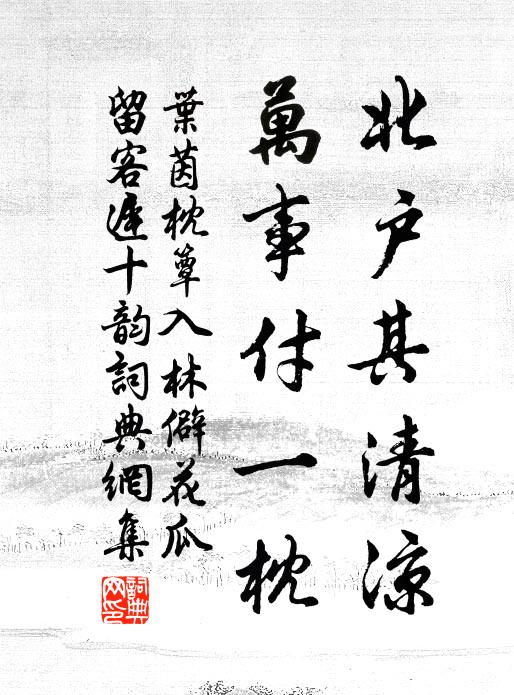 北户其清涼
萬事付一枕
葉茵枕簟入林僻花瓜
留客遲十韵詞典網集
詞典网印